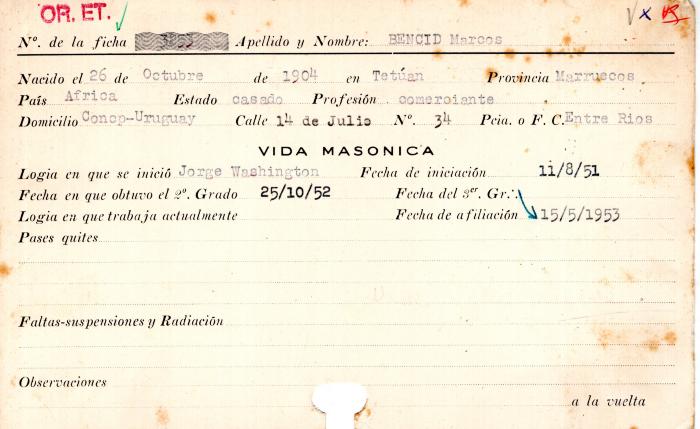 OR. ET.
Nº. de la ficha Apellido y Nombre: BENCID Marcos
Nacido el 26 de Octubre de 1904 en Tetúan Provincia Marruecos
País Africa Estado casado Profesión comerciante
Domicilio Concp-Uruguay Calle 14 de Julio Nº. 34 Pcia. o F. C. Entre Rios
VIDA MASONICA
Logia en que se inició Jorge Washington Fecha de iniciación 11/8/51
Fecha en que obtuvo el 2º. Grado 25/10/52 Fecha del 3er. Gr∴
Logia en que trabaja actualmente Fecha de afiliación 15/5/1953
Pases quites
Faltas-suspensiones y Radiación
Observaciones
a la vuelta